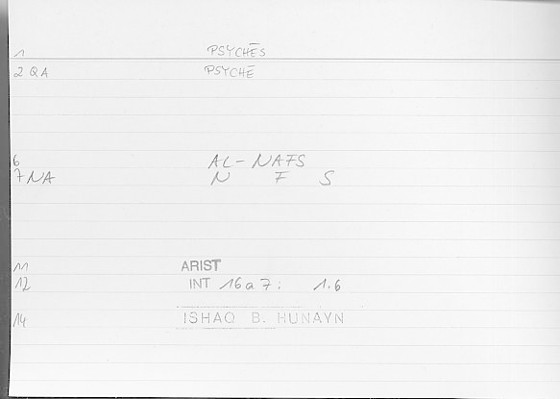 1 PSYCHĒS
2 QA PSYCHĒ
6 AL-NAFS
7 NA N F S
11 ARIST
12 INT 16a7: 1.6
14 ISHAQ B. HUNAYN